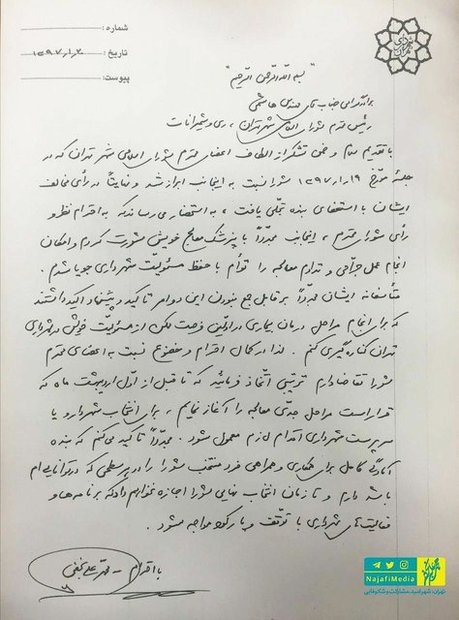 شماره :
تاریخ : ۱۳۹۷/۱/۲۰
پیوست :
"بسم الله الرحمن الرحیم"
برادر گرامی جناب آقای مهندس هاشمی
رئیس محترم شورای اسلامی شهر تهران ، ری و شمیرانات
با تقدیم سلام و ضمن تشکر از الطاف اعضای محترم شورای اسلامی شهر تهران که در
جلسه مورخ ۱۳۹۷/۱/۱۹ شورا نسبت به اینجانب ابراز شد و نهایتاً در رأی مخالف
ایشان با استعفای بنده تجلّی یافت ، به استحضار می رساند که به احترام نظر و
رأی شورای محترم ، اینجانب مجدّداً با پزشک معالج خویش مشورت کردم و امکان
انجام عمل جرّاحی و تداوم معالجه را توأم با حفظ مسئولیّت شهرداری جویا شدم .
متأسفانه ایشان مجدّداً بر قابل جمع نبودن این دو امر تأکید و پیشنهاد اکید داشتند
که برای انجام مراحل درمان بیماری در اوّلین فرصت ممکن از مسئولیّت خویش در شهرداری
تهران کناره گیری کنم . لذا در کمال احترام و خضوع نسبت به اعضای محترم
شورا تقاضا دارم ترتیبی اتّخاذ فرمائید که تا قبل از اوّل اردیبهشت ماه که
قرار است مراحل جدّی معالجه را آغاز نمایم ، برای انتخاب شهردار و یا
سرپرست شهرداری اقدام لازم معمول شود . مجدّداً تأکید می کنم که بنده
آمادگی کامل برای همکاری و همراهی فرد منتخب شورا را در هر سطحی که در توانایی ام
باشد دارم و تا زمان انتخاب نهایی شورا اجازه نخواهم داد که برنامه ها و
فعالیت های شهرداری با توقّف و یا رکود مواجه شود .
با احترام – محمد علی نجفی
NajafiMedia
تهران، شهر امید، مشارکت و شکوفایی